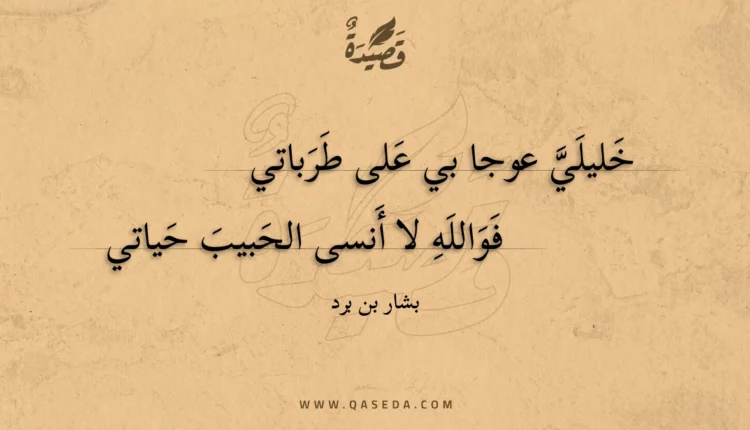 قَصِيْدَةٌ
خَليلَيَّ عوجا بي عَلى طَرَباتي
فَوَاللَهِ لا أَنسى الحَبيبَ حَياتي
بشار بن برد
WWW.QASEDA.COM